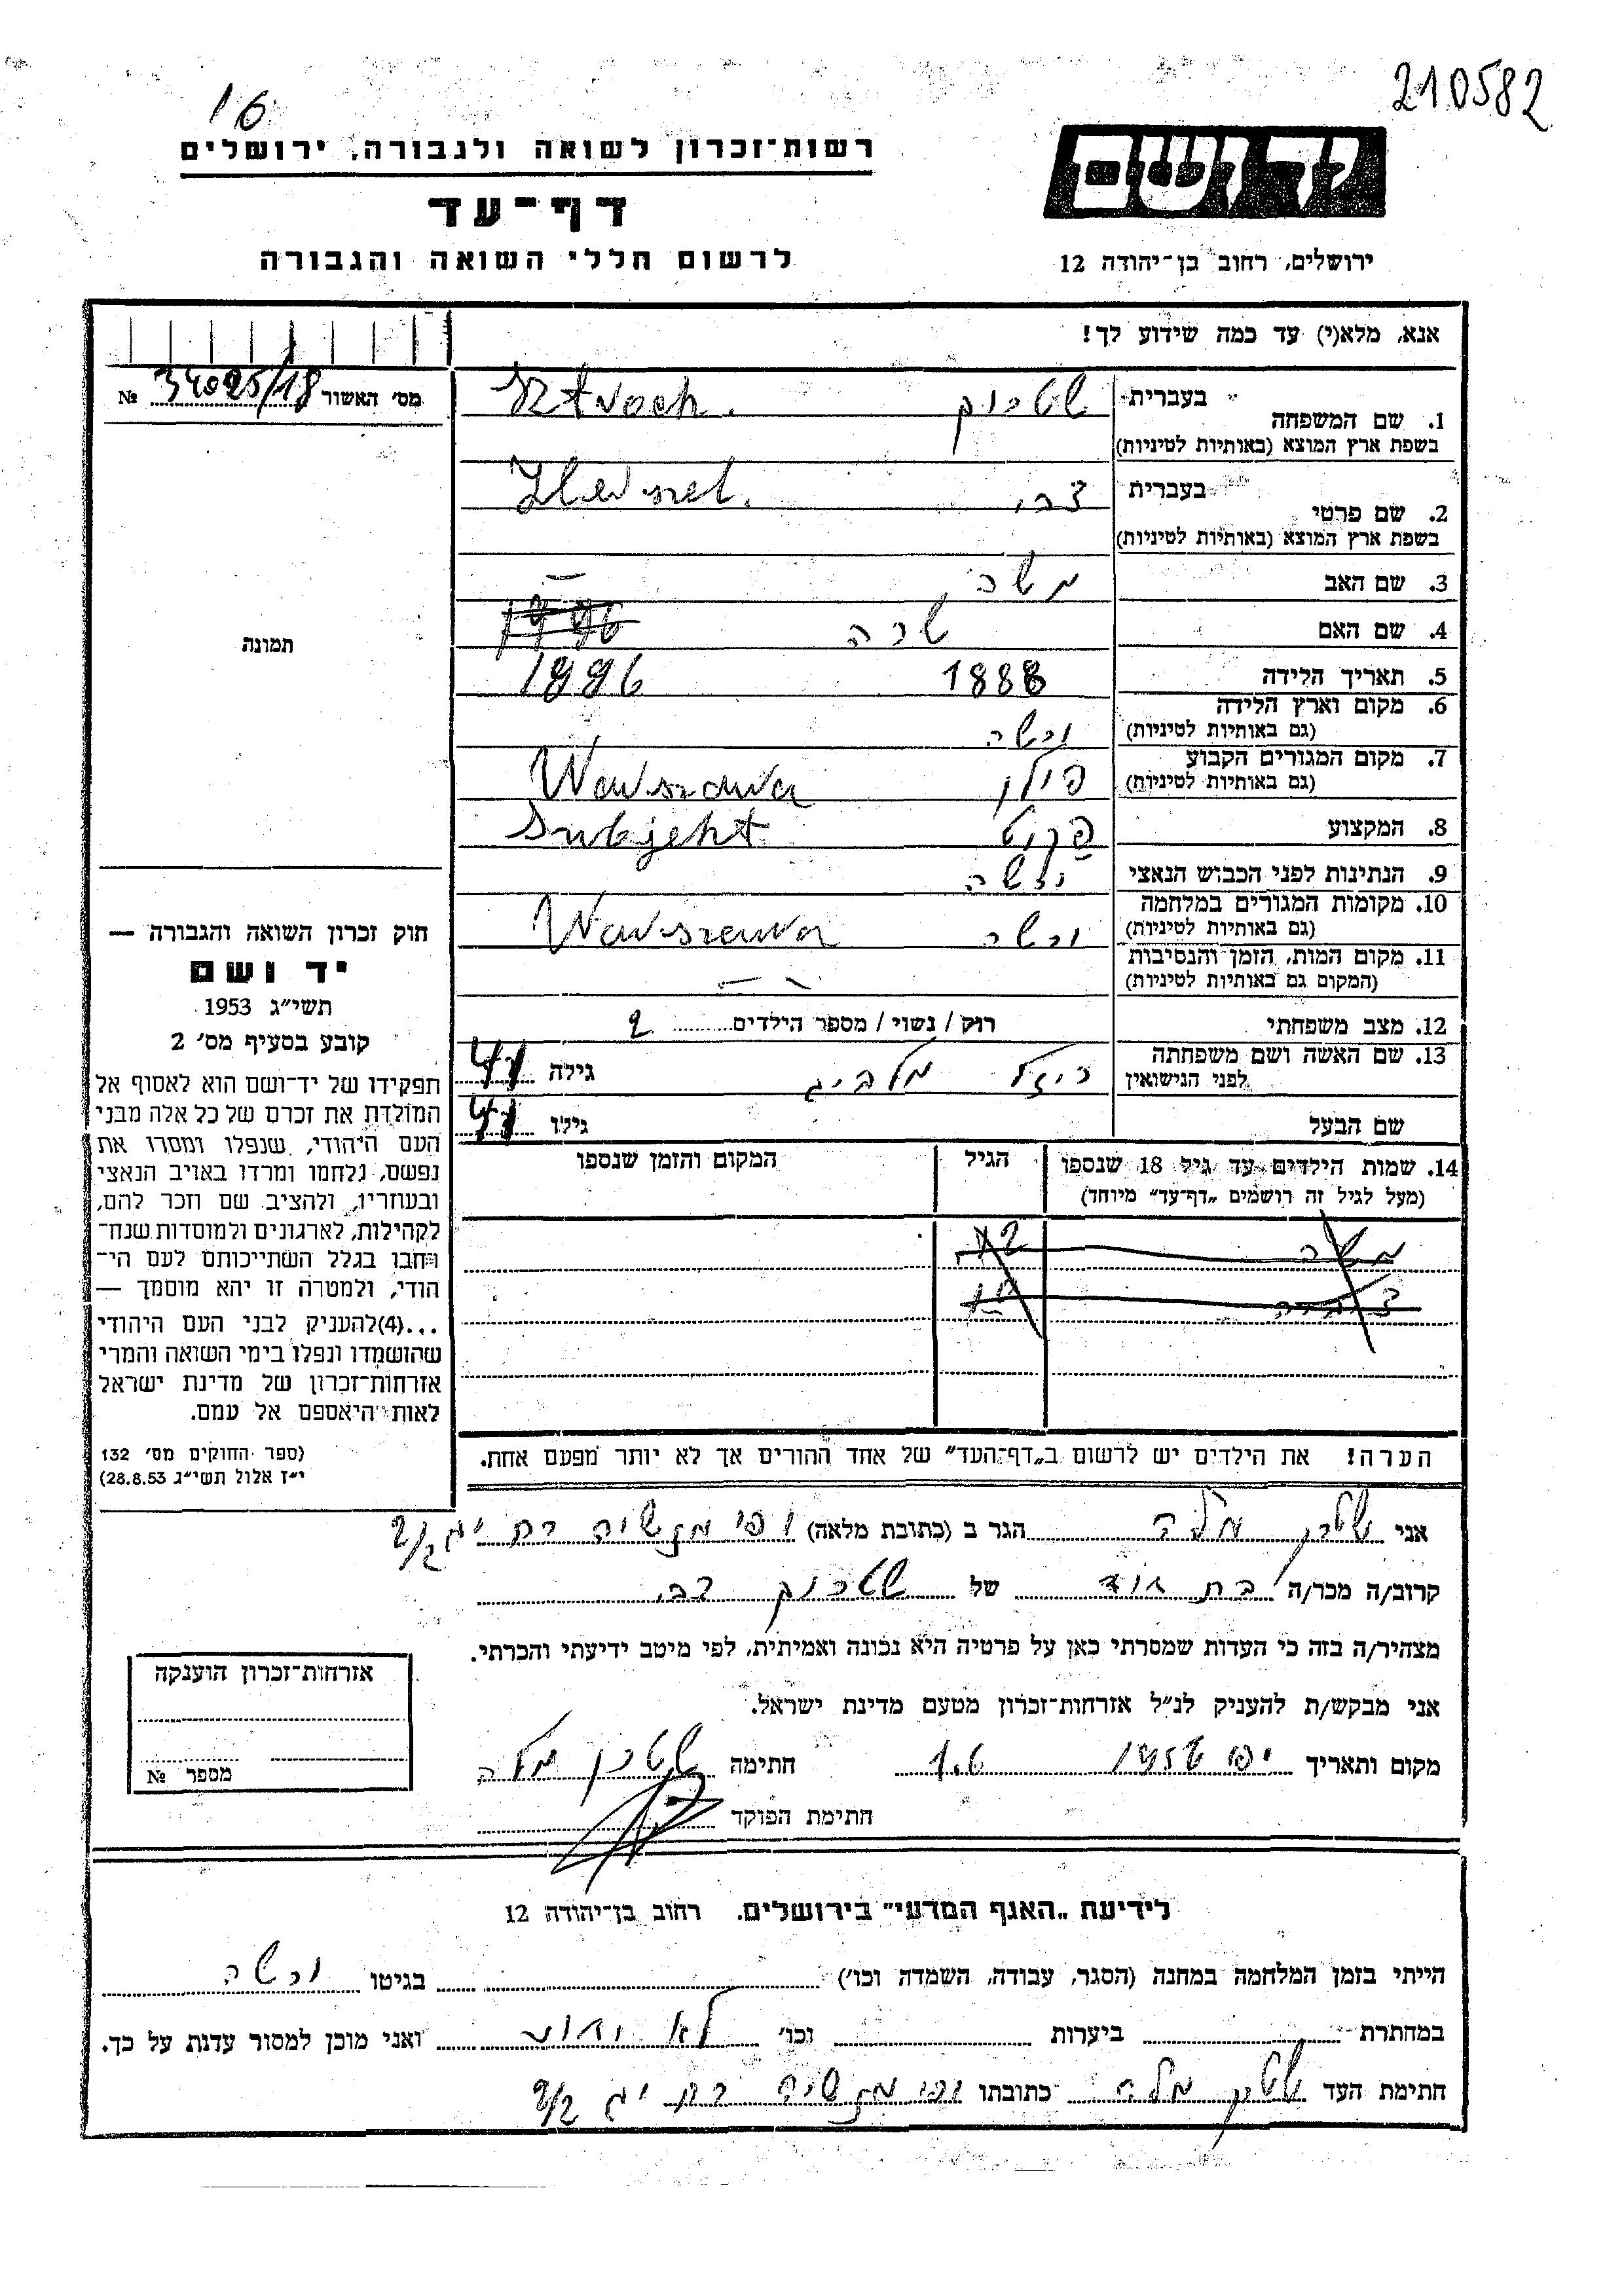 210582
16
רשות־זכרון לשואה ולגבורה, ירושלים
יד ושם
דף־עד
לרשום חללי השואה והגבורה
ירושלים, רחוב בן־יהודה 12
אנא, מלא(י) עד כמה שידוע לך!
מס׳ האשור 34025/18 №
1. שם המשפחה
בעברית שטרוק
בשפת ארץ המוצא (באותיות לטיניות)
2. שם פרטי
בעברית צבי
בשפת ארץ המוצא (באותיות לטיניות)
3. שם האב משה
4. שם האם שרה
5. תאריך הלידה 1888
6. מקום וארץ הלידה ורשה
(גם באותיות לטיניות)
7. מקום המגורים הקבוע פולין Warszawa
(גם באותיות לטיניות)
8. המקצוע
9. הנתינות לפני הכבוש הנאצי
10. מקומות המגורים במלחמה ורשה Warszawa
(גם באותיות לטיניות)
11. מקום המות, הזמן והנסיבות
(המקום גם באותיות לטיניות)
12. מצב משפחתי רווק / נשוי / מספר הילדים 2
13. שם האשה ושם משפחתה
לפני הנישואין
גילה 41
שם הבעל גילו 41
14. שמות הילדים עד גיל 18 שנספו
(מעל לגיל זה רושמים „דף־עד” מיוחד)
הגיל
המקום והזמן שנספו
משה 12
הערה! את הילדים יש לרשום ב„דף־העד” של אחד ההורים אך לא יותר מפעם אחת.
תמונה
חוק זכרון השואה והגבורה —
יד ושם
תשי״ג 1953
קובע בסעיף מס׳ 2
תפקידו של יד־ושם הוא לאסוף אל
המולדת את זכרם של כל אלה מבני
העם היהודי, שנפלו ומסרו את
נפשם, נלחמו ומרדו באויב הנאצי
ובעוזריו, ולהציב שם וזכר להם,
לקהילות, לארגונים ולמוסדות שנח־
רבו בגלל השתייכותם לעם הי־
הודי, ולמטרה זו יהא מוסמך —
...(4) להעניק לבני העם היהודי
שהושמדו ונפלו בימי השואה והמרי
אזרחות־זכרון של מדינת ישראל
לאות היאספם אל עמם.
(ספר החוקים מס׳ 132
י״ז אלול תשי״ג 28.8.53)
אני מלה הגר ב (כתובת מלאה)
קרוב/ה מכר/ה בת דוד של שטרוק צבי
מצהיר/ה בזה כי העדות שמסרתי כאן על פרטיה היא נכונה ואמיתית, לפי מיטב ידיעתי והכרתי.
אני מבקש/ת להעניק לנ״ל אזרחות־זכרון מטעם מדינת ישראל.
מקום ותאריך יפו 1956 חתימה מלה
חתימת הפוקד
אזרחות־זכרון הוענקה
מספר №
לידיעת „האגף המדעי” בירושלים, רחוב בן־יהודה 12
הייתי בזמן המלחמה במחנה (הסגר, עבודה, השמדה וכו׳) בגיטו ורשה
במחתרת ביערות וכו׳ לא ואני מוכן למסור עדות על כך.
חתימת העד מלה כתובתו